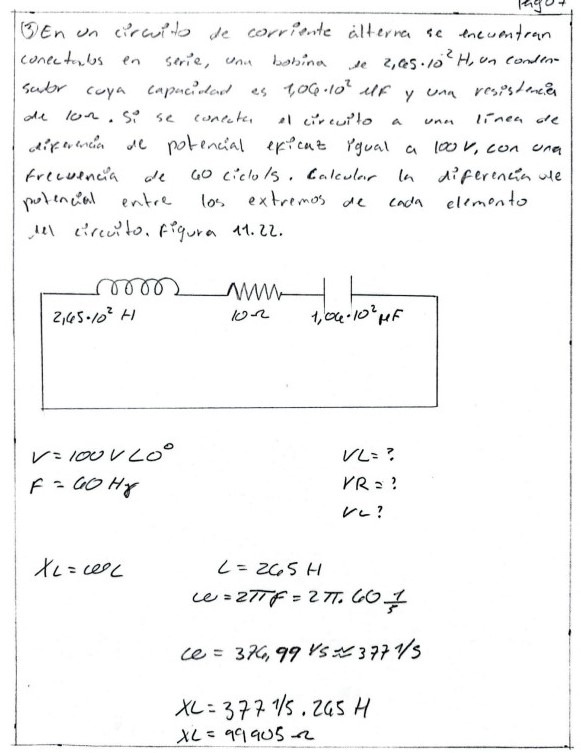 pag 07
③ En un circuito de corriente alterna se encuentran
conectados en serie, una bobina de 2,65·10² H, un conden-
sador cuya capacidad es 1,06·10² µF y una resistencia
de 10Ω. Si se conecta el circuito a una línea de
diferencia de potencial eficaz igual a 100 V, con una
frecuencia de 60 ciclo/s. Calcular la diferencia de
potencial entre los extremos de cada elemento
del circuito. Figura 11.22.
2,65·10² H 10Ω 1,06·10² µF
V = 100 V ∠0° VL = ?
F = 60 Hz VR = ?
VC ?
XL = ωL L = 265 H
ω = 2πF = 2π. 60 1/s
ω = 376,99 1/s ≈ 377 1/s
XL = 377 1/s . 265 H
XL = 99905 Ω